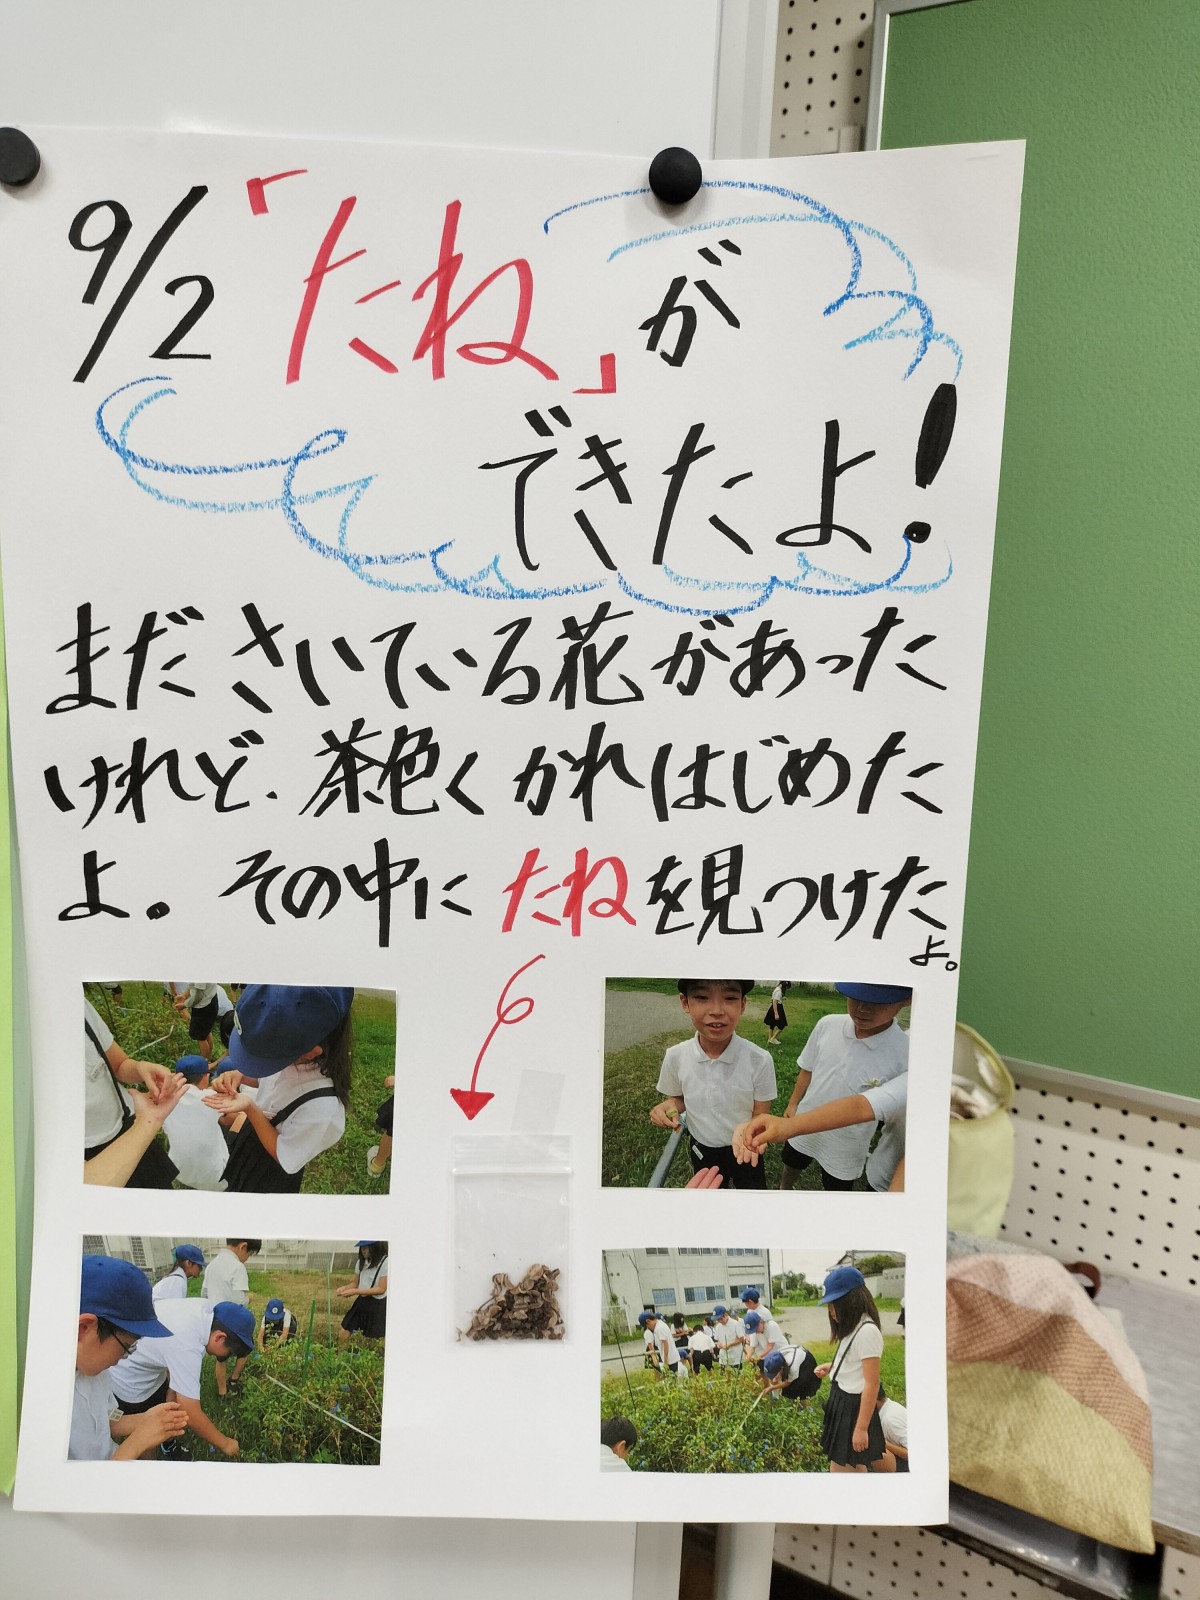 9/2「たね」が
できたよ!
まださいている花があった
けれど、茶色くかれはじめた
よ。その中にたねを見つけた
よ。